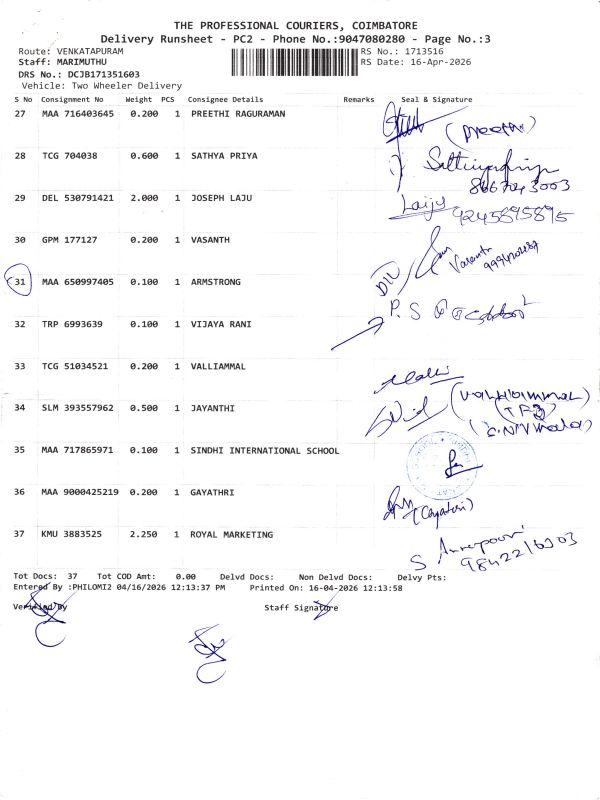 THE PROFESSIONAL COURIERS, COIMBATORE
Delivery Runsheet - PC2 - Phone No.:9047080280 - Page No.:3
Route: VENKATAPURAM RS No.: 1713516
Staff: MARIMUTHU RS Date: 16-Apr-2026
DRS No.: DCJB171351603
Vehicle: Two Wheeler Delivery
S No Consignment No Weight PCS Consignee Details Remarks Seal & Signature
27 MAA 716403645 0.200 1 PREETHI RAGURAMAN
28 TCG 704038 0.600 1 SATHYA PRIYA
8667243003
29 DEL 530791421 2.000 1 JOSEPH LAJU Laiju
9245895895
30 GPM 177127 0.200 1 VASANTH Vasanth
31 MAA 650997405 0.100 1 ARMSTRONG
P. S
32 TRP 6993639 0.100 1 VIJAYA RANI
33 TCG 51034521 0.200 1 VALLIAMMAL
34 SLM 393557962 0.500 1 JAYANTHI (Valliammal
35 MAA 717865971 0.100 1 SINDHI INTERNATIONAL SCHOOL
36 MAA 9000425219 0.200 1 GAYATHRI (Gayatori)
37 KMU 3883525 2.250 1 ROYAL MARKETING
S
Tot Docs: 37 Tot COD Amt: 0.00 Delvd Docs: Non Delvd Docs: Delvy Pts:
Entered By :PHILOMI2 04/16/2026 12:13:37 PM Printed On: 16-04-2026 12:13:58
Verified By Staff Signature